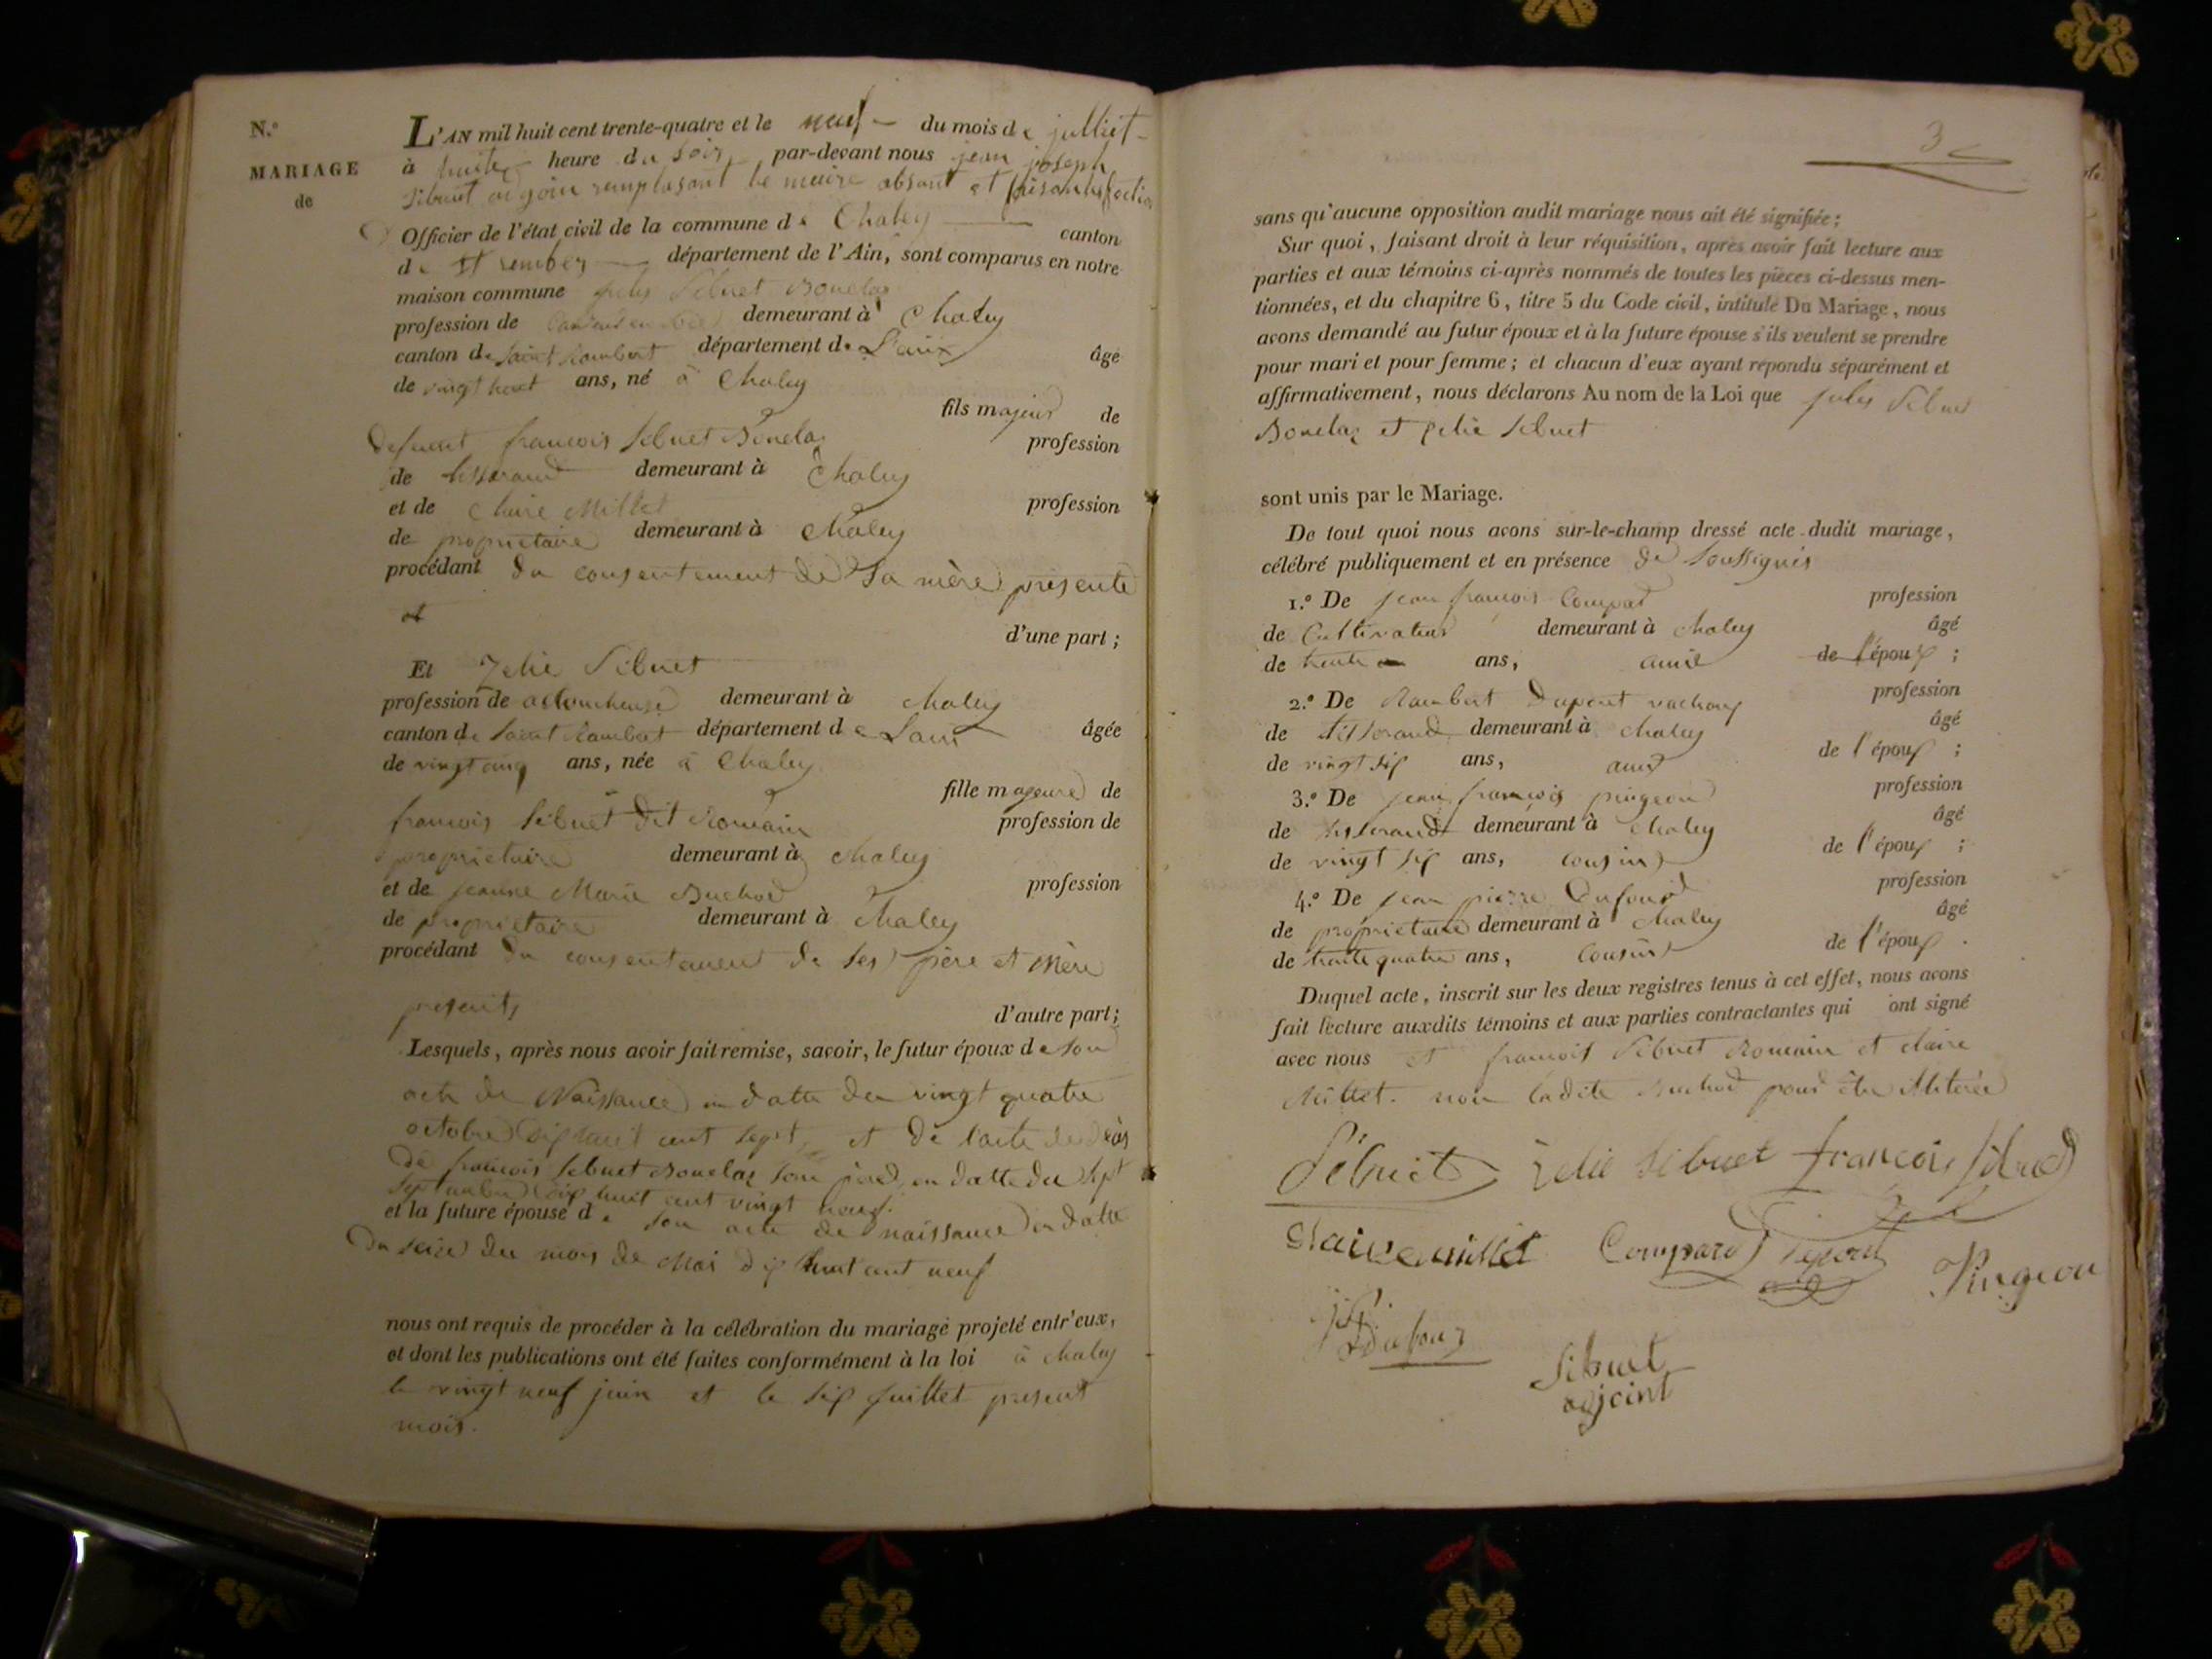 N.º
MARIAGE
de
L'AN mil huit cent trente-quatre et le neuf du mois de julliet
à huite heure du soir par-devant nous jean joseph
Sibuet adjoin remplasant le maire absant et faisant
Officier de l'état civil de la commune de Chaley canton
de St rember département de l'Ain, sont comparus en notre
maison commune jules Sibuet Bonelaz
profession de demeurant à Chaley
canton de Saint Rambert département de L'ain âgé
de vingt ans, né à Chaley
fils majeur de
defunt francois Sibuet Bonelaz profession
de tisserand demeurant à Chaley
et de Claire Millet profession
de propriétaire demeurant à Chaley
procédant du consentement de Sa mère présente
et
d'une part;
Et Zelie Sibuet
profession de demeurant à Chaley
canton de Saint Rambert département de Lain âgée
de vingt cinq ans, née à Chaley
fille majeure de
francois Sibuet dit Romain profession de
propriétaire demeurant à Chaley
et de jeanne Marie Buchod profession
de propriétaire demeurant à Chaley
procédant du consentement de ses père et Mère
presents
d'autre part;
Lesquels, après nous avoir fait remise, savoir, le futur époux de son
acte de Naissance en datte du vingt quatre
octobre dix huit cent sept, et de l'acte de décès
de francois Sibuet Bonelaz son père, en datte du sept
Septembre dix huit cent vingt neuf.
et la future épouse de son acte de naissance en datte
du seize du mois de Mai dix huit cent neuf
nous ont requis de procéder à la célébration du mariage projeté entr'eux,
et dont les publications ont été faites conformément à la loi à chaley
le vingt neuf juin et le six juillet present
mois.
3
sans qu'aucune opposition audit mariage nous ait été signifiée;
Sur quoi, faisant droit à leur réquisition, après avoir fait lecture aux
parties et aux témoins ci-après nommés de toutes les pièces ci-dessus men-
tionnées, et du chapitre 6, titre 5 du Code civil, intitulé Du Mariage, nous
avons demandé au futur époux et à la future épouse s'ils veulent se prendre
pour mari et pour femme; et chacun d'eux ayant répondu séparément et
affirmativement, nous déclarons Au nom de la Loi que jules Sibuet
Bonelaz et Zelie Sibuet
sont unis par le Mariage.
De tout quoi nous avons sur-le-champ dressé acte dudit mariage,
célébré publiquement et en présence de Soussignés
1.º De jean françois Compard profession
de Cultivateur demeurant à chaley âgé
de trente ans, amie de l'époux;
2.º De Rambert Dupont profession
de tisserand demeurant à chaley âgé
de vingt six ans, amie de l'époux;
3.º De jean françois pingeon profession
de tisserand demeurant à Chaley âgé
de vingt six ans, cousin de l'époux;
4.º De jean pierre Dufour profession
de propriétaire demeurant à Chaley âgé
de trente quatre ans, Cousin de l'époux.
Duquel acte, inscrit sur les deux registres tenus à cet effet, nous avons
fait lecture auxdits témoins et aux parties contractantes qui ont signé
avec nous et francois Sibuet Romain et claire
Millet. non ladite Buchod pour être illiterée
Sibuet Zelie Sibuet francois Sibuet
Claire millet Compard Dupont Pingeon
Dufour
Sibuet
adjoint